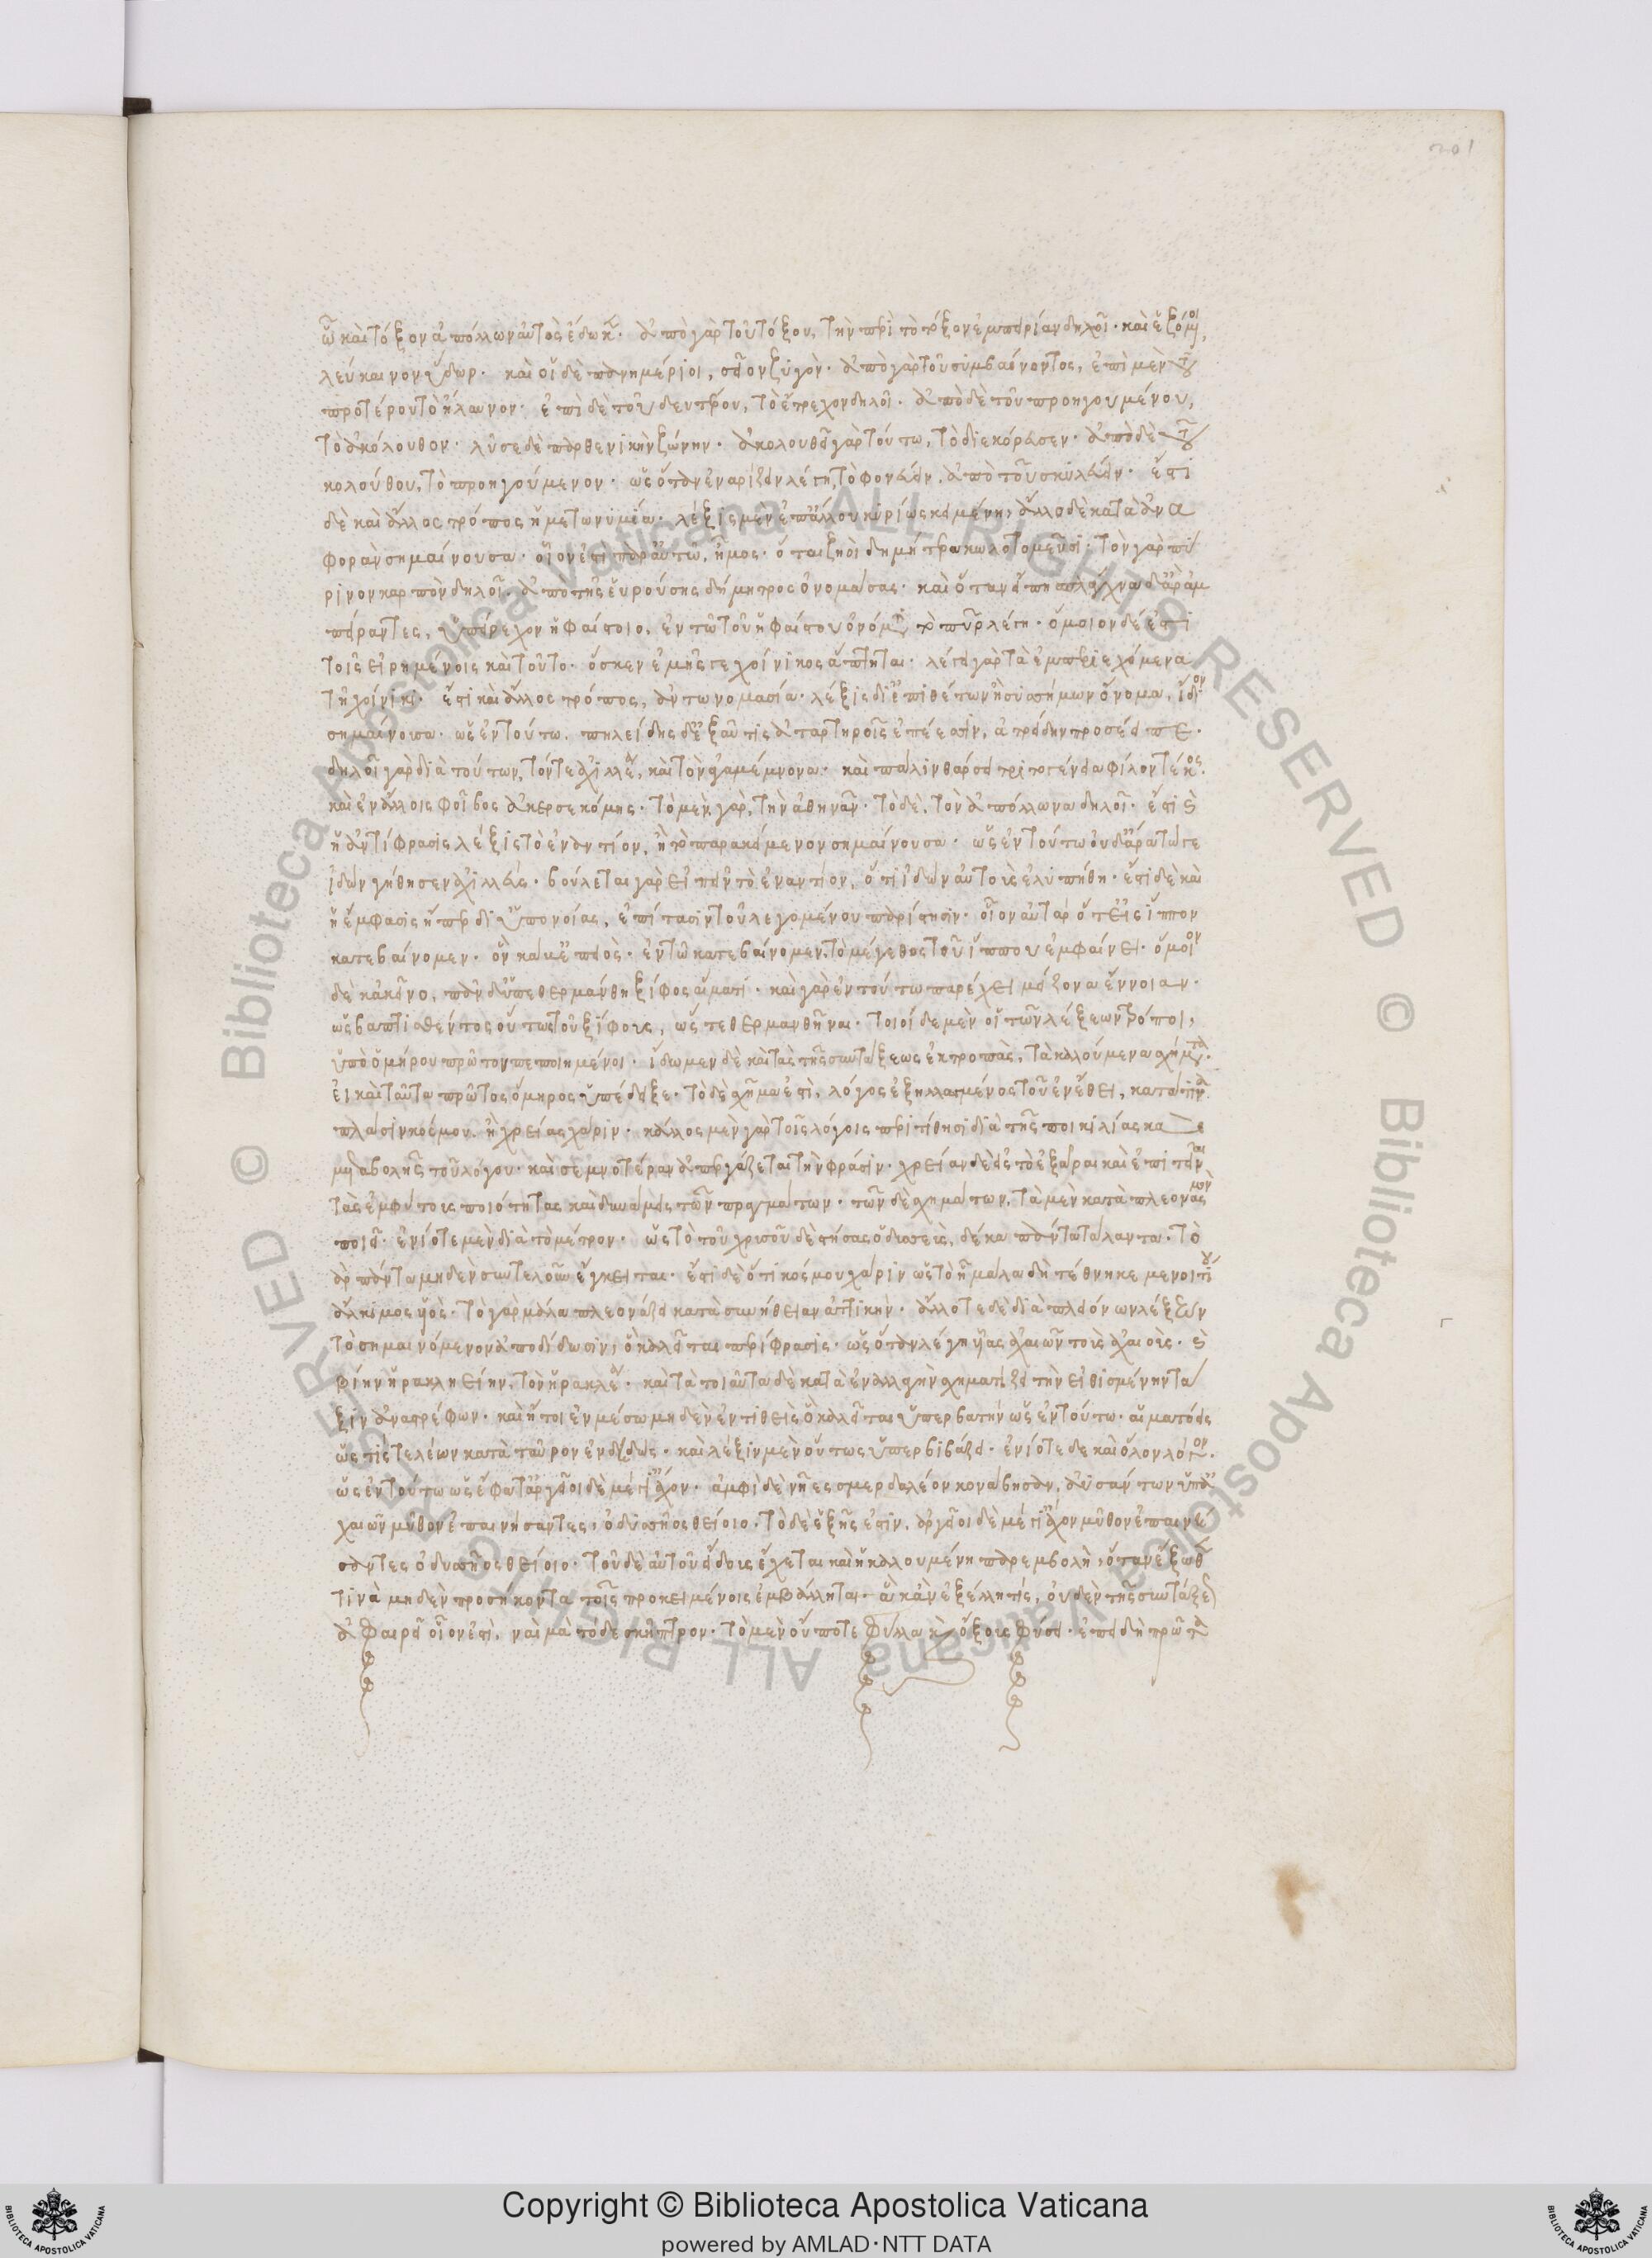 201
ᾧ καὶ τόξον ἀπόλλων αὐτὸς ἔδωκε· ἀπὸ γὰρ τοῦ τόξου, τὴν περὶ τὸ τόξον ἐμπειρίαν δηλοῖ· καὶ ἑζόμενοι,
λεύκαινον ὕδωρ· καὶ οἱ δὲ πανημέριοι, σεῖον ζυγὸν· ἀπὸ γὰρ τοῦ συμβαίνοντος, ἐπὶ μὲν τοῦ
προτέρου τὸ ἤλαυνον· ἐπὶ δὲ τοῦ δευτέρου, τὸ ἔτρεχον δηλοῖ. ἀπὸ δὲ τοῦ προηγουμένου,
τὸ ἀκόλουθον· λῦσε δὲ παρθενικὴν ζώνην· ἀκολουθεῖ γὰρ τούτω, τὸ διεκόρησεν· ἀπὸ δὲ τοῦ
κολούθου, τὸ προηγούμενον· ὡς ὅταν ἐναρίζειν λέγη, τὸ φονεύειν, ἀπὸ τοῦ σκυλεύειν· ἔστι
δὲ καὶ ἄλλος τρόπος ἡ μετωνυμία· λέξις μὲν ἐπ᾽ ἄλλου κυρίως κειμένη, ἄλλο δὲ κατὰ ἀνα
φορὰν σημαίνουσα· οἷον ἐστι παρ᾽ αὐτῶ, ἦμος· ὅτ᾽ αἰζηοὶ δημήτερα κωλοτομεῦσι· τὸν γὰρ πύ
ρινον καρπὸν δηλοῖ, ἀπὸ τῆς εὑρούσης δήμητρος ὀνομάσας· καὶ ὅταν εἴπη σπλάγχνα δ᾽ ἄρ᾽ ἀμ
πείραντες, ὑπείρεχον ἡφαίστοιο, ἐν τῶ τοῦ ἡφαίστου ὀνόματι τὸ πῦρ λέγη· ὅμοιον δέ ἐστι
τοῖς εἰρημένοις καὶ τοῦτο· ὅς κεν ἐμῆς γε χοίνικος ἅπτηται· λέγει γὰρ τὰ ἐμπεριεχόμενα
τῆ χοίνικι· ἔστι καὶ ἄλλος τρόπος, ἀντονομασία· λέξις δι᾽ ἐπιθέτων ἢ συσσήμων ὄνομα, ἴδιον
σημαίνουσα· ὡς ἐν τούτω. πηλείδης δ᾽ ἐξαῦτις ἀταρτηροῖς ἐπέεσσιν, ἀτρείδην προσέειπε·
δηλοῖ γὰρ διὰ τούτων, τόν τε ἀχιλλέα, καὶ τὸν ἀγαμέμνονα· καὶ πάλιν θάρσει τριτογένεια φίλον τέκος·
καὶ ἐν ἄλλοις φοῖβος ἀκερσεκόμης· τὸ μὲν γὰρ, τὴν ἀθηνᾶν· τὸ δὲ, τὸν ἀπόλλωνα δηλοῖ· ἔστι καὶ
ἡ ἀντίφρασις λέξις τὸ ἐναντίον, ἢ τὸ παρακείμενον σημαίνουσα· ὡς ἐν τούτω οὐδ᾽ ἄρα τώ γε
ἰδὼν γήθησεν ἀχιλλεύς· βούλεται γὰρ εἰπεῖν τὸ ἐναντίον, ὅτι ἰδὼν αὐτοὺς ἐλυπήθη· ἔστι δὲ καὶ
ἡ ἔμφασις ἥπερ δι᾽ ὑπονοίας, ἐπίτασιν τοῦ λεγομένου παρίστησιν· οἷον αὐτὰρ ὅτ᾽ εἰς ἵππον
κατεβαίνομεν· ὃν κάμ᾽ ἐπειὸς· ἐν τῶ κατεβαίνομεν, τὸ μέγεθος τοῦ ἵππου ἐμφαίνει· ὅμοιον
δὲ κἀκεῖνο, πᾶν δ᾽ ὑπεθερμάνθη ξίφος αἵματι· καὶ γὰρ ἐν τούτω παρέχει μείζονα ἔννοιαν·
ὡς βαπτισθέντος οὕτως τοῦ ξίφους, ὥστε θερμανθῆναι· τοιοίδε μὲν οἱ τῶν λέξεων τρόποι,
ὑπὸ ὁμήρου πρῶτον πεποιημένοι· ἴδωμεν δὲ καὶ τὰς τῆς συντάξεως ἐκτροπὰς, τὰ καλούμενα σχήματα·
εἰ καὶ ταῦτα πρῶτος ὅμηρος ὑπέδειξε· τὸ δὲ σχῆμα ἐστὶ, λόγος ἐξηλλαγμένος τοῦ ἐν ἔθει, κατά τινα
πλάσιν κόσμου, ἢ χρείας χάριν· κάλλος μὲν γὰρ τοῖς λόγοις περιτίθησι διὰ τῆς ποικιλίας καὶ
μεταβολῆς τοῦ λόγου· καὶ σεμνοτέραν ἀπεργάζεται τὴν φράσιν· χρείαν δὲ εἰς τὸ ἐξᾶραι καὶ ἐπιτεῖναι
τὰς ἐμφύτους ποιότητας καὶ δυνάμεις τῶν πραγμάτων· τῶν δὲ σχημάτων, τὰ μὲν κατὰ πλεονασμὸν
ποιεῖ· ἐνίοτε μὲν διὰ τὸ μέτρον· ὡς τὸ τοῦ χρυσοῦ δὲ στήσας ὀδυσσεὺς, δέκα πάντα τάλαντα· τὸ
γὰρ πάντα μηδὲν συντελοῦν ἔγκειται· ἔστι δὲ ὅτι κόσμου χάριν ὡς τὸ ἦ μάλα δὴ τέθνηκε μενοιτίου
ἄλκιμος υἱὸς· τὸ γὰρ μάλα πλεονάζει κατὰ συνήθειαν ἀττικὴν· ἄλλοτε δὲ διὰ πλειόνων λέξεων
τὸ σημαινόμενον ἀποδίδωσιν, ὃ καλεῖται περίφρασις· ὡς ὅταν λέγη υἷας ἀχαιῶν τοὺς ἀχαιοὺς· καὶ
βίην ἡρακληείην, τὸν ἡρακλέα· καὶ τὰ τοιαῦτα δὲ κατὰ ἐναλλαγὴν σχηματίζει τὴν εἰθισμένην τά
ξιν ἀναστρέφων· καὶ ἤτοι ἐν μέσω μηδὲν ἐντιθεὶς ὃ καλεῖται ὑπερβατὴν ὡς ἐν τούτω· αἵματόεις
ὥς τις τελέων κατὰ ταῦρον ἐδηδώς· καὶ λέξιν μὲν οὕτως ὑπερβιβάζει· ἐνίοτε δὲ καὶ ὅλον λόγον·
ὡς ἐν τούτω ὡς ἔφατ᾽ ἀργεῖοι δὲ μέγ᾽ ἴαχον· ἀμφὶ δὲ νῆες σμερδαλέον κονάβησαν, ἀϋσάντων ὑπ᾽ ἀ
χαιῶν μῦθον ἐπαινήσαντες, ὀδυσσῆος θείοιο· τὸ δὲ ἑξῆς ἐστιν, ἀργεῖοι δὲ μέγ᾽ ἴαχον μῦθον ἐπαινή
σαντες ὀδυσσῆος θείοιο· τοῦ δὲ αὐτοῦ εἴδους ἔχεται καὶ ἡ καλουμένη παρεμβολὴ, ὅταν ἔξωθέν
τινὰ μηδὲν προσήκοντα τοῖς προκειμένοις ἐμβάλληται· ἃ κἂν ἐξέλη τις, οὐδὲν τῆς συντάξεως
ἀφαιρεῖ οἷον ἐστὶ, ναὶ μὰ τόδε σκῆπτρον· τὸ μὲν οὔποτε φύλλα καὶ ὄξους φύσει· ἐπειδὴ πρῶτα